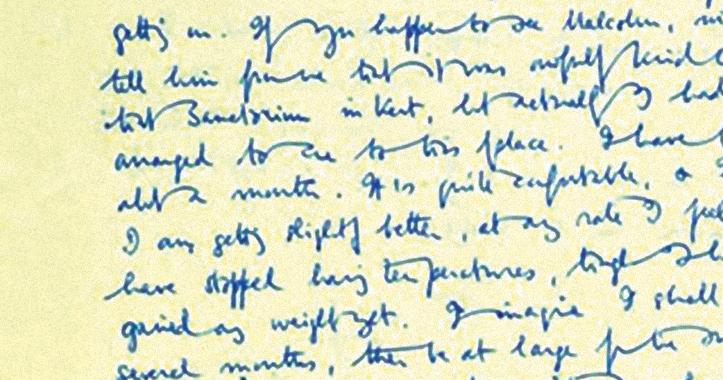 getting on. If you happen to see Malcolm,
tell him from me that it was awfully kind
that Sanatorium in Kent, but actually I had
arranged to come to this place. I have
about a month. It is quite comfortable, & I
I am getting slightly better, at any rate I
have stopped having temperatures, though I
gained any weight yet. I imagine I shall
several months, then be at large for the